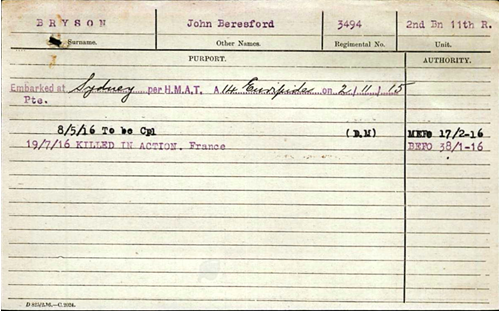 BRYSON John Beresford 3494 2nd Bn 11th R.
Surname. Other Names. Regimental No. Unit.
PURPORT. AUTHORITY.
Embarked at Sydney per H.M.A.T. A14 Euripides on 2/11/15
Pte.
8/5/16 To be Cpl (D.M) MEFO 17/2-16
19/7/16 KILLED IN ACTION. France BEFO 38/1-16